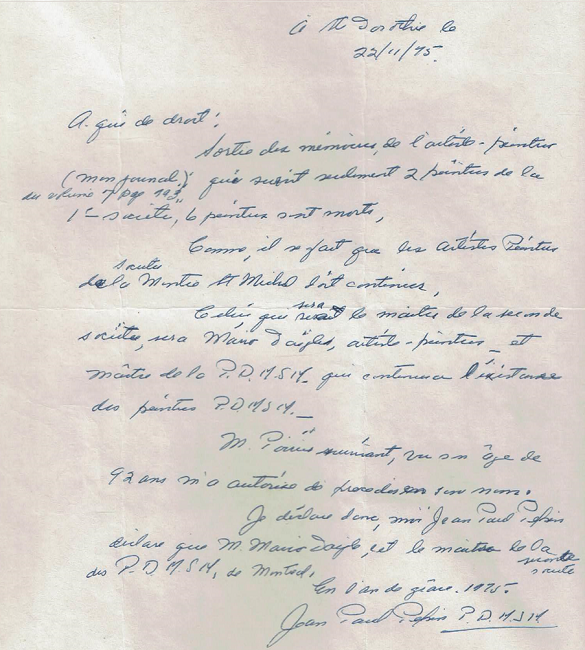 A St Dorothie le
22/11/75.
A. qui de droit:
Sortie des mémoires, de l'artiste-peintre
(mon journal) qui suit seulement 2 peintres de la
du volume 7 page 193
1re société, 6 peintres sont morts,
Comme, il se fait que les artistes Peintres
société
de la Montée St Michel doit continuer,
sera
Celui qui le maître de la seconde
société, sera Mario Daigle, artiste-peintre _ et
maître de la P.D.M.S.M. qui continuera l'existance
des peintres P.D.M.S.M. _
M. Poirier survivant, vu son âge de
92 ans m'a autorisé de procéder en son nom.
Je déclare donc, moi Jean Paul Pépin
déclare que M. Mario Daigle, est le maître de la
seconde
société
des P.D.M.S.M, de Montréal,
En l'an de grâce. 1975.
Jean Paul Pépin P.D.M.S.M.